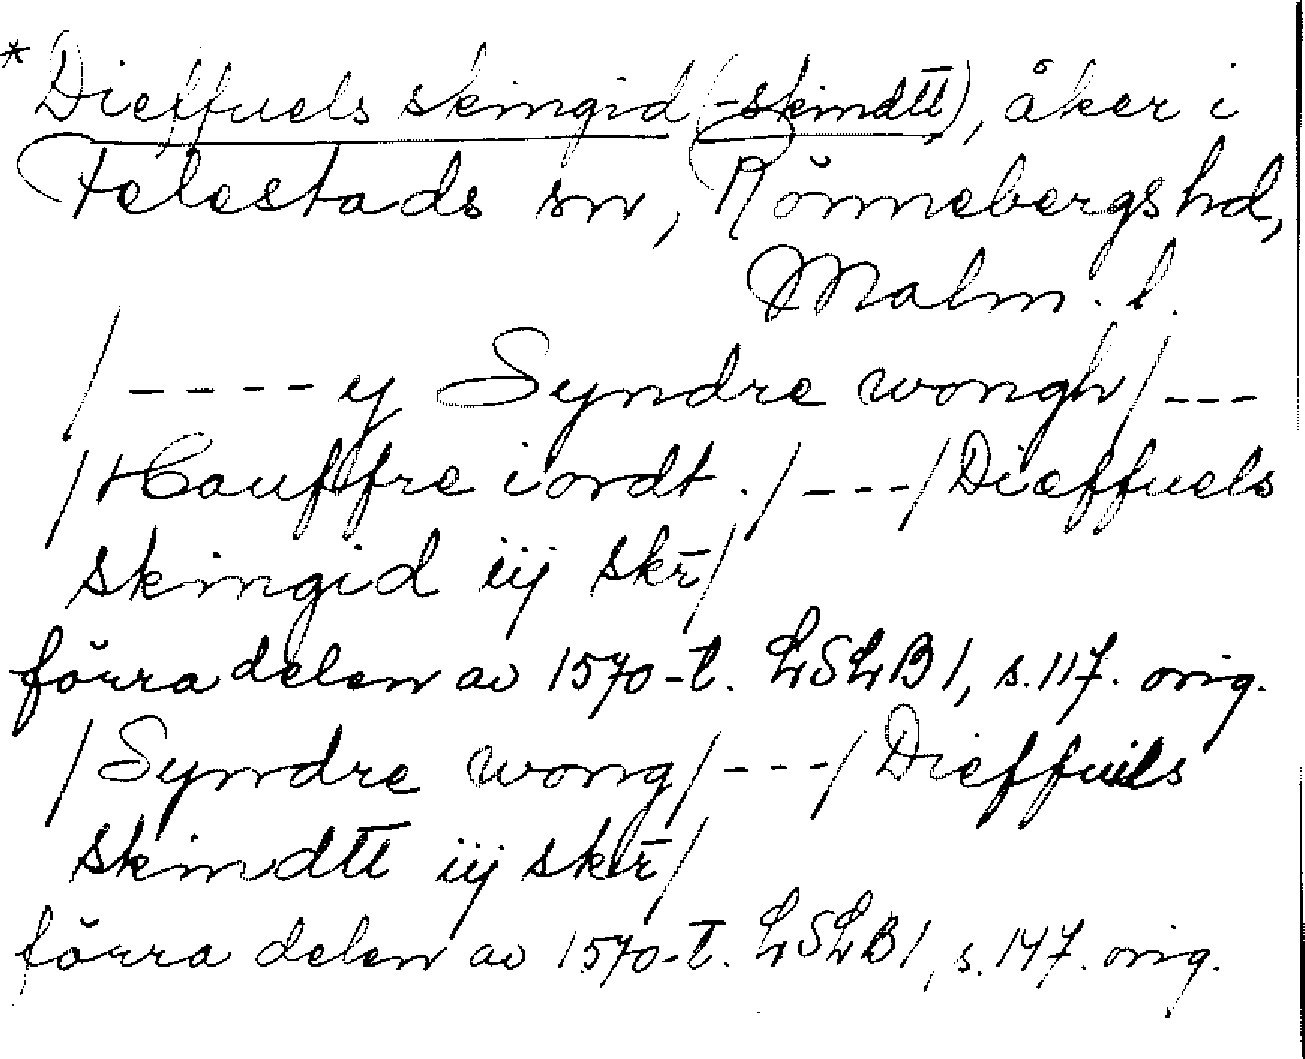 *Dieffuels skingid (-skindtt), åker i
Felestads sn, Rönnebergs hd,
Malm. l.
/ ---- y Syndre wongh / ---
/ Hauffre iordt. / --- / Dieffuels
skingid iij skr̄ /
förra delen av 1570-t. LSLB 1, s. 117. orig.
/ Syndre wong / --- / Dieffuils
skindtt iij skr̄ /
förra delen av 1570-t. LSLB 1, s. 147. orig.